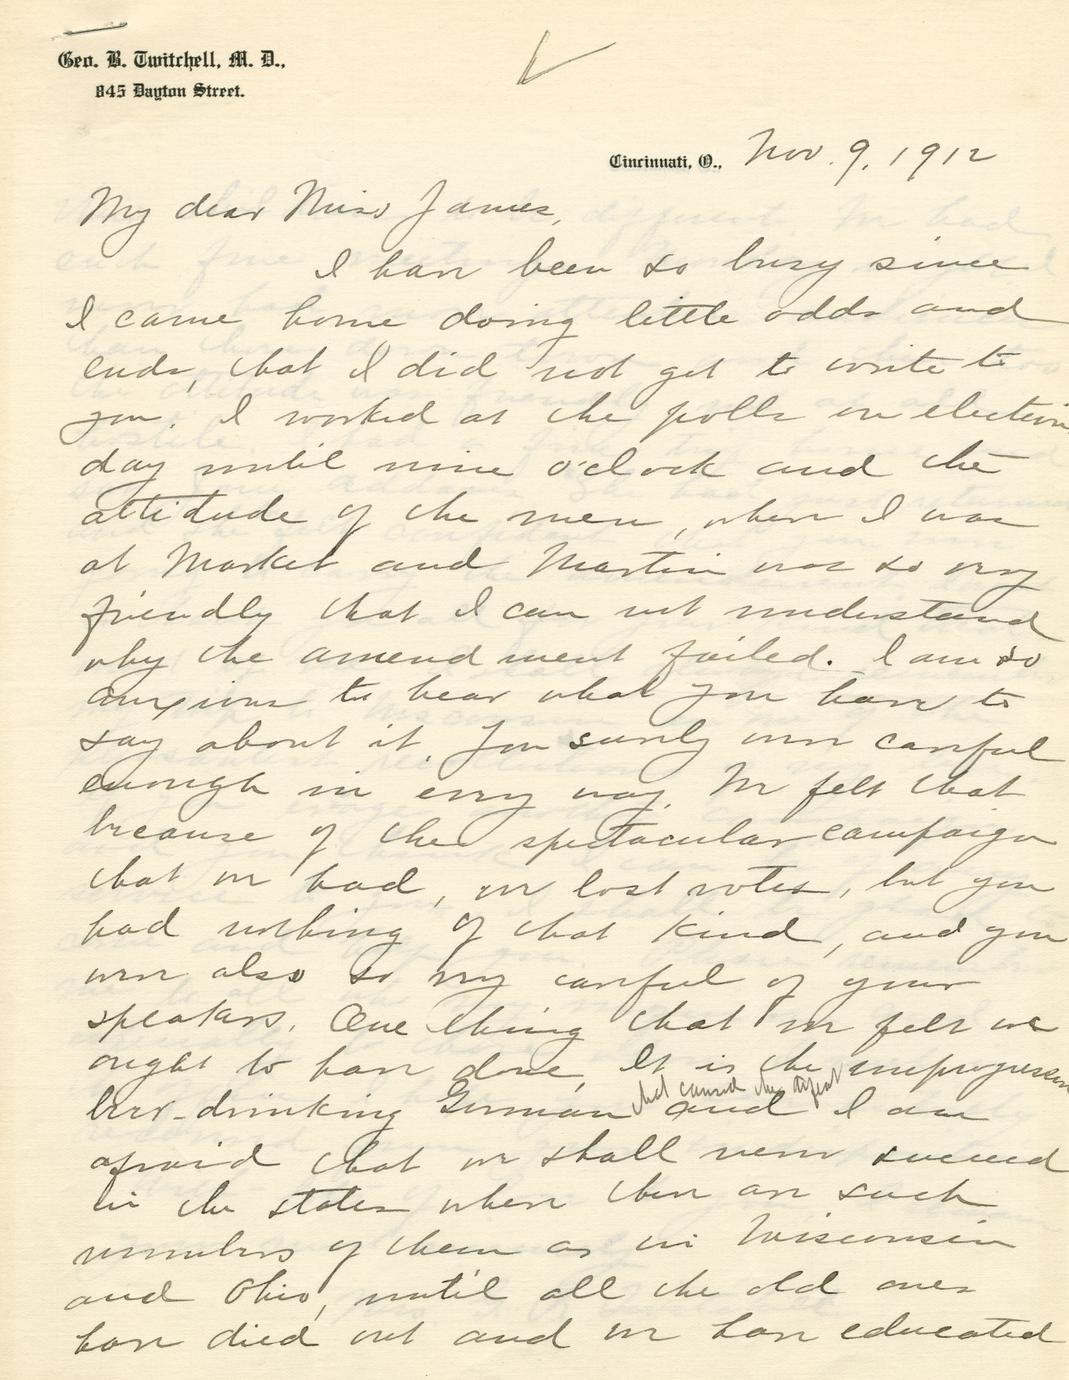 Geo. B. Twitchell, M. D.,
845 Dayton Street.
Cincinnati, O., Nov. 9, 1912
My dear Miss James,
I have been so busy since
I came home doing little odds and
ends, that I did not get to write to
you. I worked at the polls on election
day until nine o'clock and the
attitude of the men, when I was
at Market and Martin was so very
friendly that I can not understand
why the amendment failed. I am so
anxious to hear what you have to
say about it. You surely were careful
enough in every way. We felt that
because of the spectacular campaign
that we had, we lost votes, but you
had nothing of that kind, and you
were also so very careful of your
speakers. One thing that we felt we
ought to have done, It is the unprogressive
beer-drinking German that caused the defeat and I am
afraid that we shall never succeed
in the states where there are such
numbers of them as in Wisconsin
and Ohio, until all the old ones
have died out and we have educated